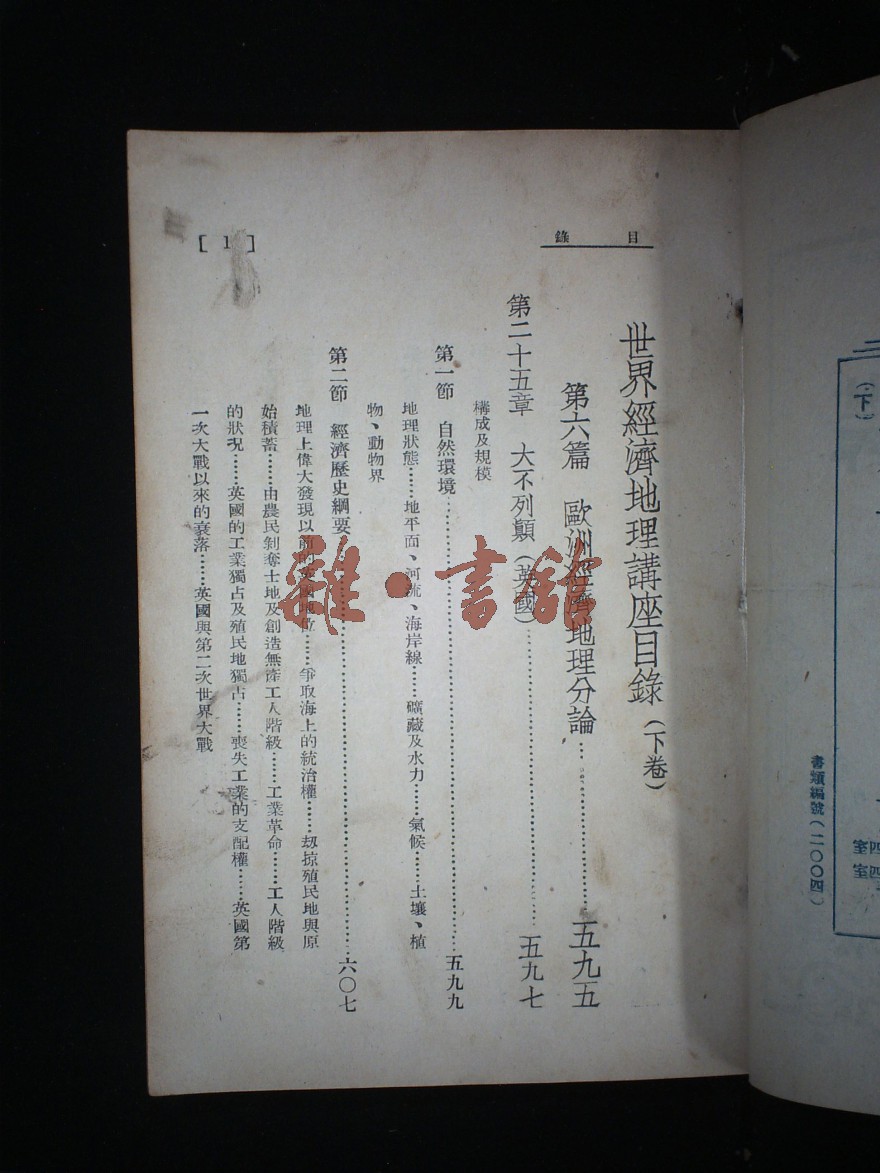 目錄
[1]
世界經濟地理講座目錄(下卷)
第六篇 歐洲經濟地理分論……五九五
第二十五章 大不列顛(英國)……五九七
構成及規模
第一節 自然環境……五九九
地理狀態……地平面、河流、海岸線……礦藏及水力……氣候……土壤、植
物、動物界
第二節 經濟歷史綱要……六〇七
地理上偉大發現以前的英國地位……爭取海上的統治權……刼掠殖民地與原
始積蓄……由農民剝奪土地及創造無產工人階級……工業革命……工人階級
的狀况……英國的工業獨占及殖民地獨占……喪失工業的支配權……英國第
一次大戰以來的衰落……英國與第二次世界大戰
雜·書館
(下)
書類編號(二〇〇四)